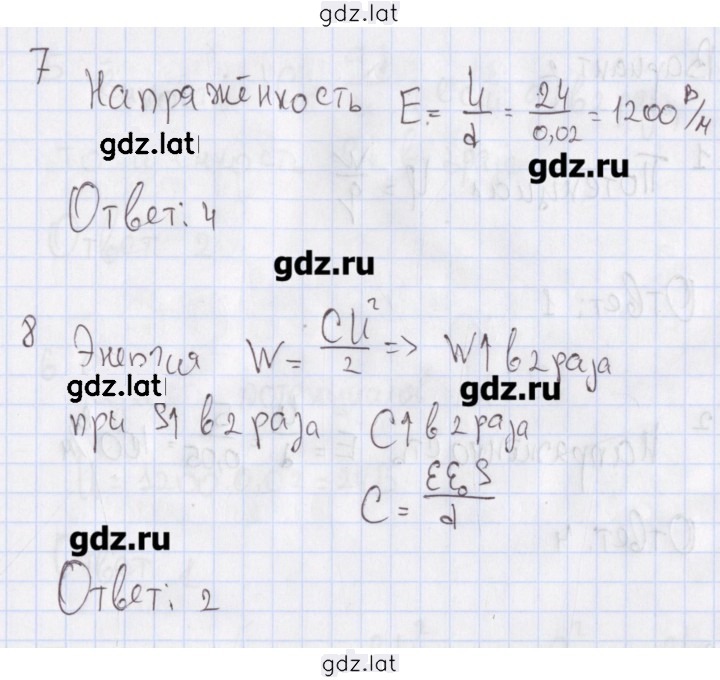 gdz.lat
7
Напряжёнкость E = U/d = 24/0,02 = 1200 В/м
gdz.lat
gdz.ru
Ответ: 4
gdz.ru
8
Энергия W = CU²/2 => W↑ в 2 раза
gdz.lat
gdz.ru
при S↑ в 2 раза C↑ в 2 раза
C = εε₀S/d
gdz.ru
Ответ: 2
gdz.lat